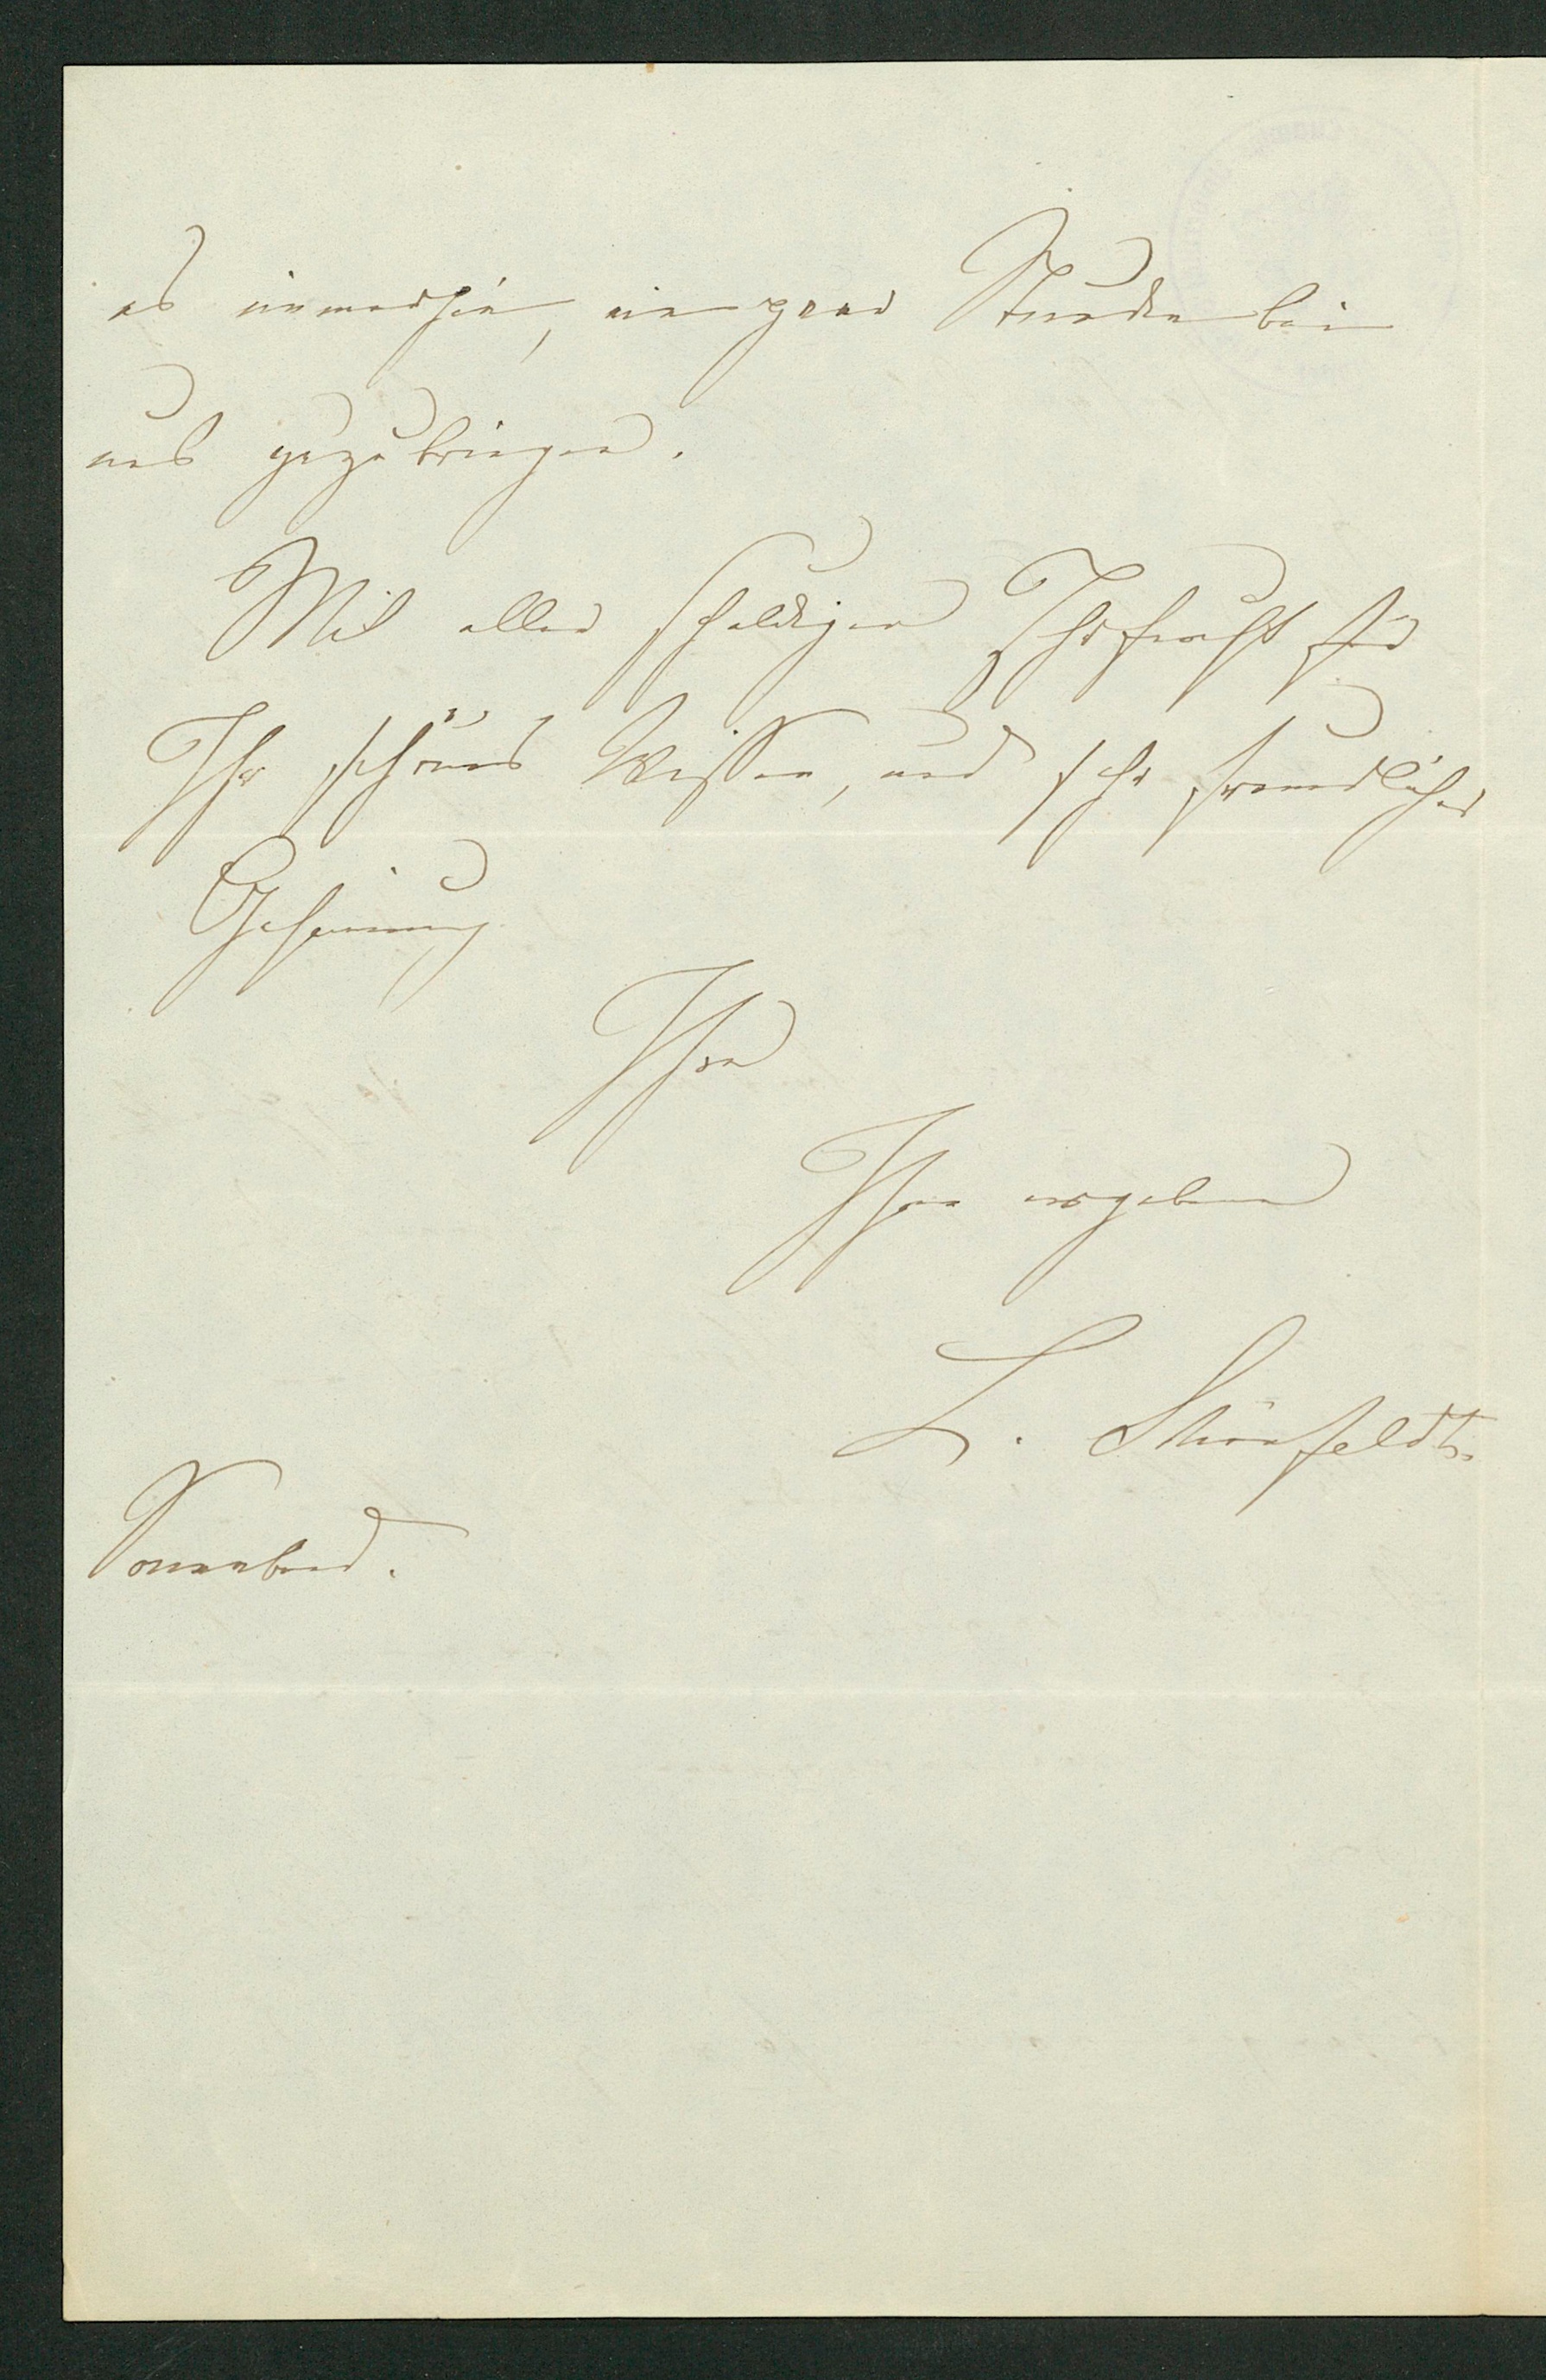 es immerhin, ein paar Stunden bei
uns zuzubringen.
Mit aller schuldigen Ehrfurcht für
Ihr schönes Wissen, und sehr freundlicher
Gesinnung
Ihre
Ihnen ergebene
L. Schönfeldt.
Sonnabend.